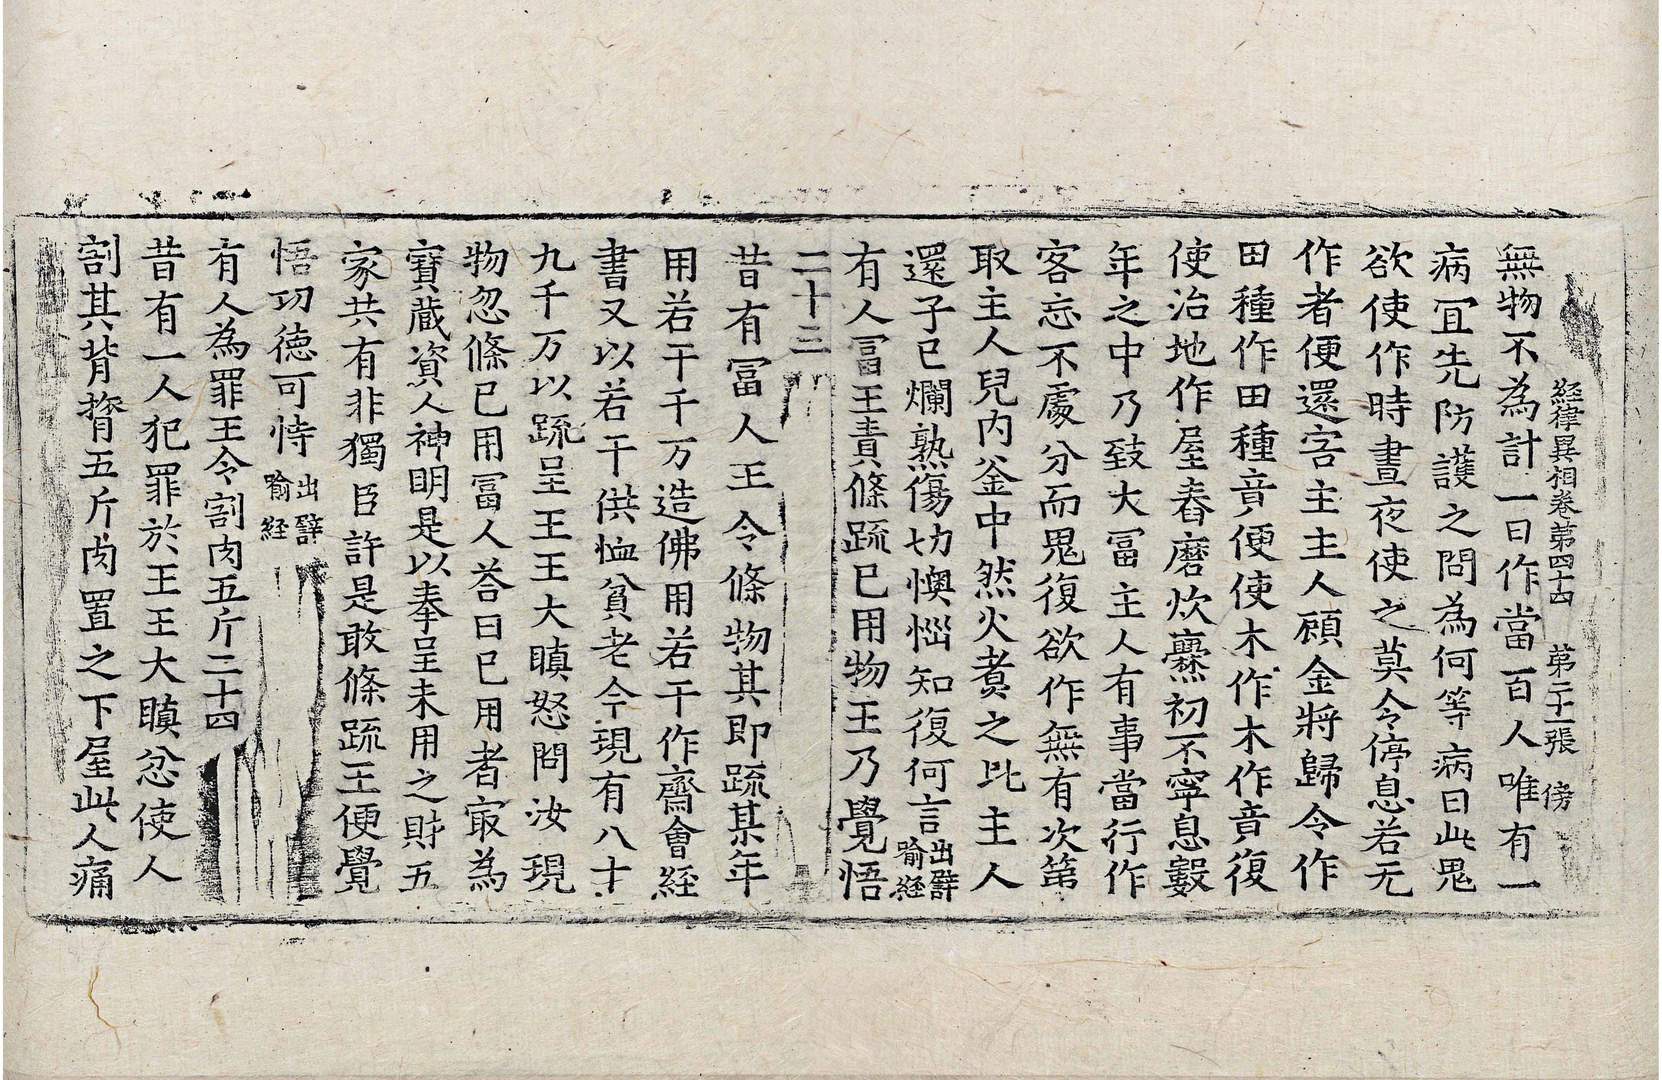 経律異相巻第四十四 第二十二張 傍
無物不為計一日作當百人唯有一
病冝先防護之問為何等病曰此鬼
欲使作時晝夜使之莫令停息若无
作者便還害主主人顧金將歸令作
田種作田種音便使木作木作音復
使治地作屋舂磨炊爨初不寧息數
年之中乃致大冨主人有事當行作
客忘不處分而鬼復欲作無有次第
取主人兒內釜中然火煮之比主人
還子已爛熟傷切懊惱知復何言出譬喻経
有人冨王責條疏已用物王乃覺悟
二十三
昔有冨人王令條物其即疏某年
用若干千万造佛用若干作齋會経
書又以若干供恤貧老今現有八十
九千万以疏呈王王大瞋怒問汝現
物忽條已用冨人荅曰已用者㝡為
寶藏資人神明是以奉呈未用之財五
家共有非獨臣許是敢條疏王便覺
悟功德可恃出譬喻経
有人為罪王令割肉五斤二十四
昔有一人犯罪於王王大瞋忿使人
割其背膌五斤肉置之下屋此人痛